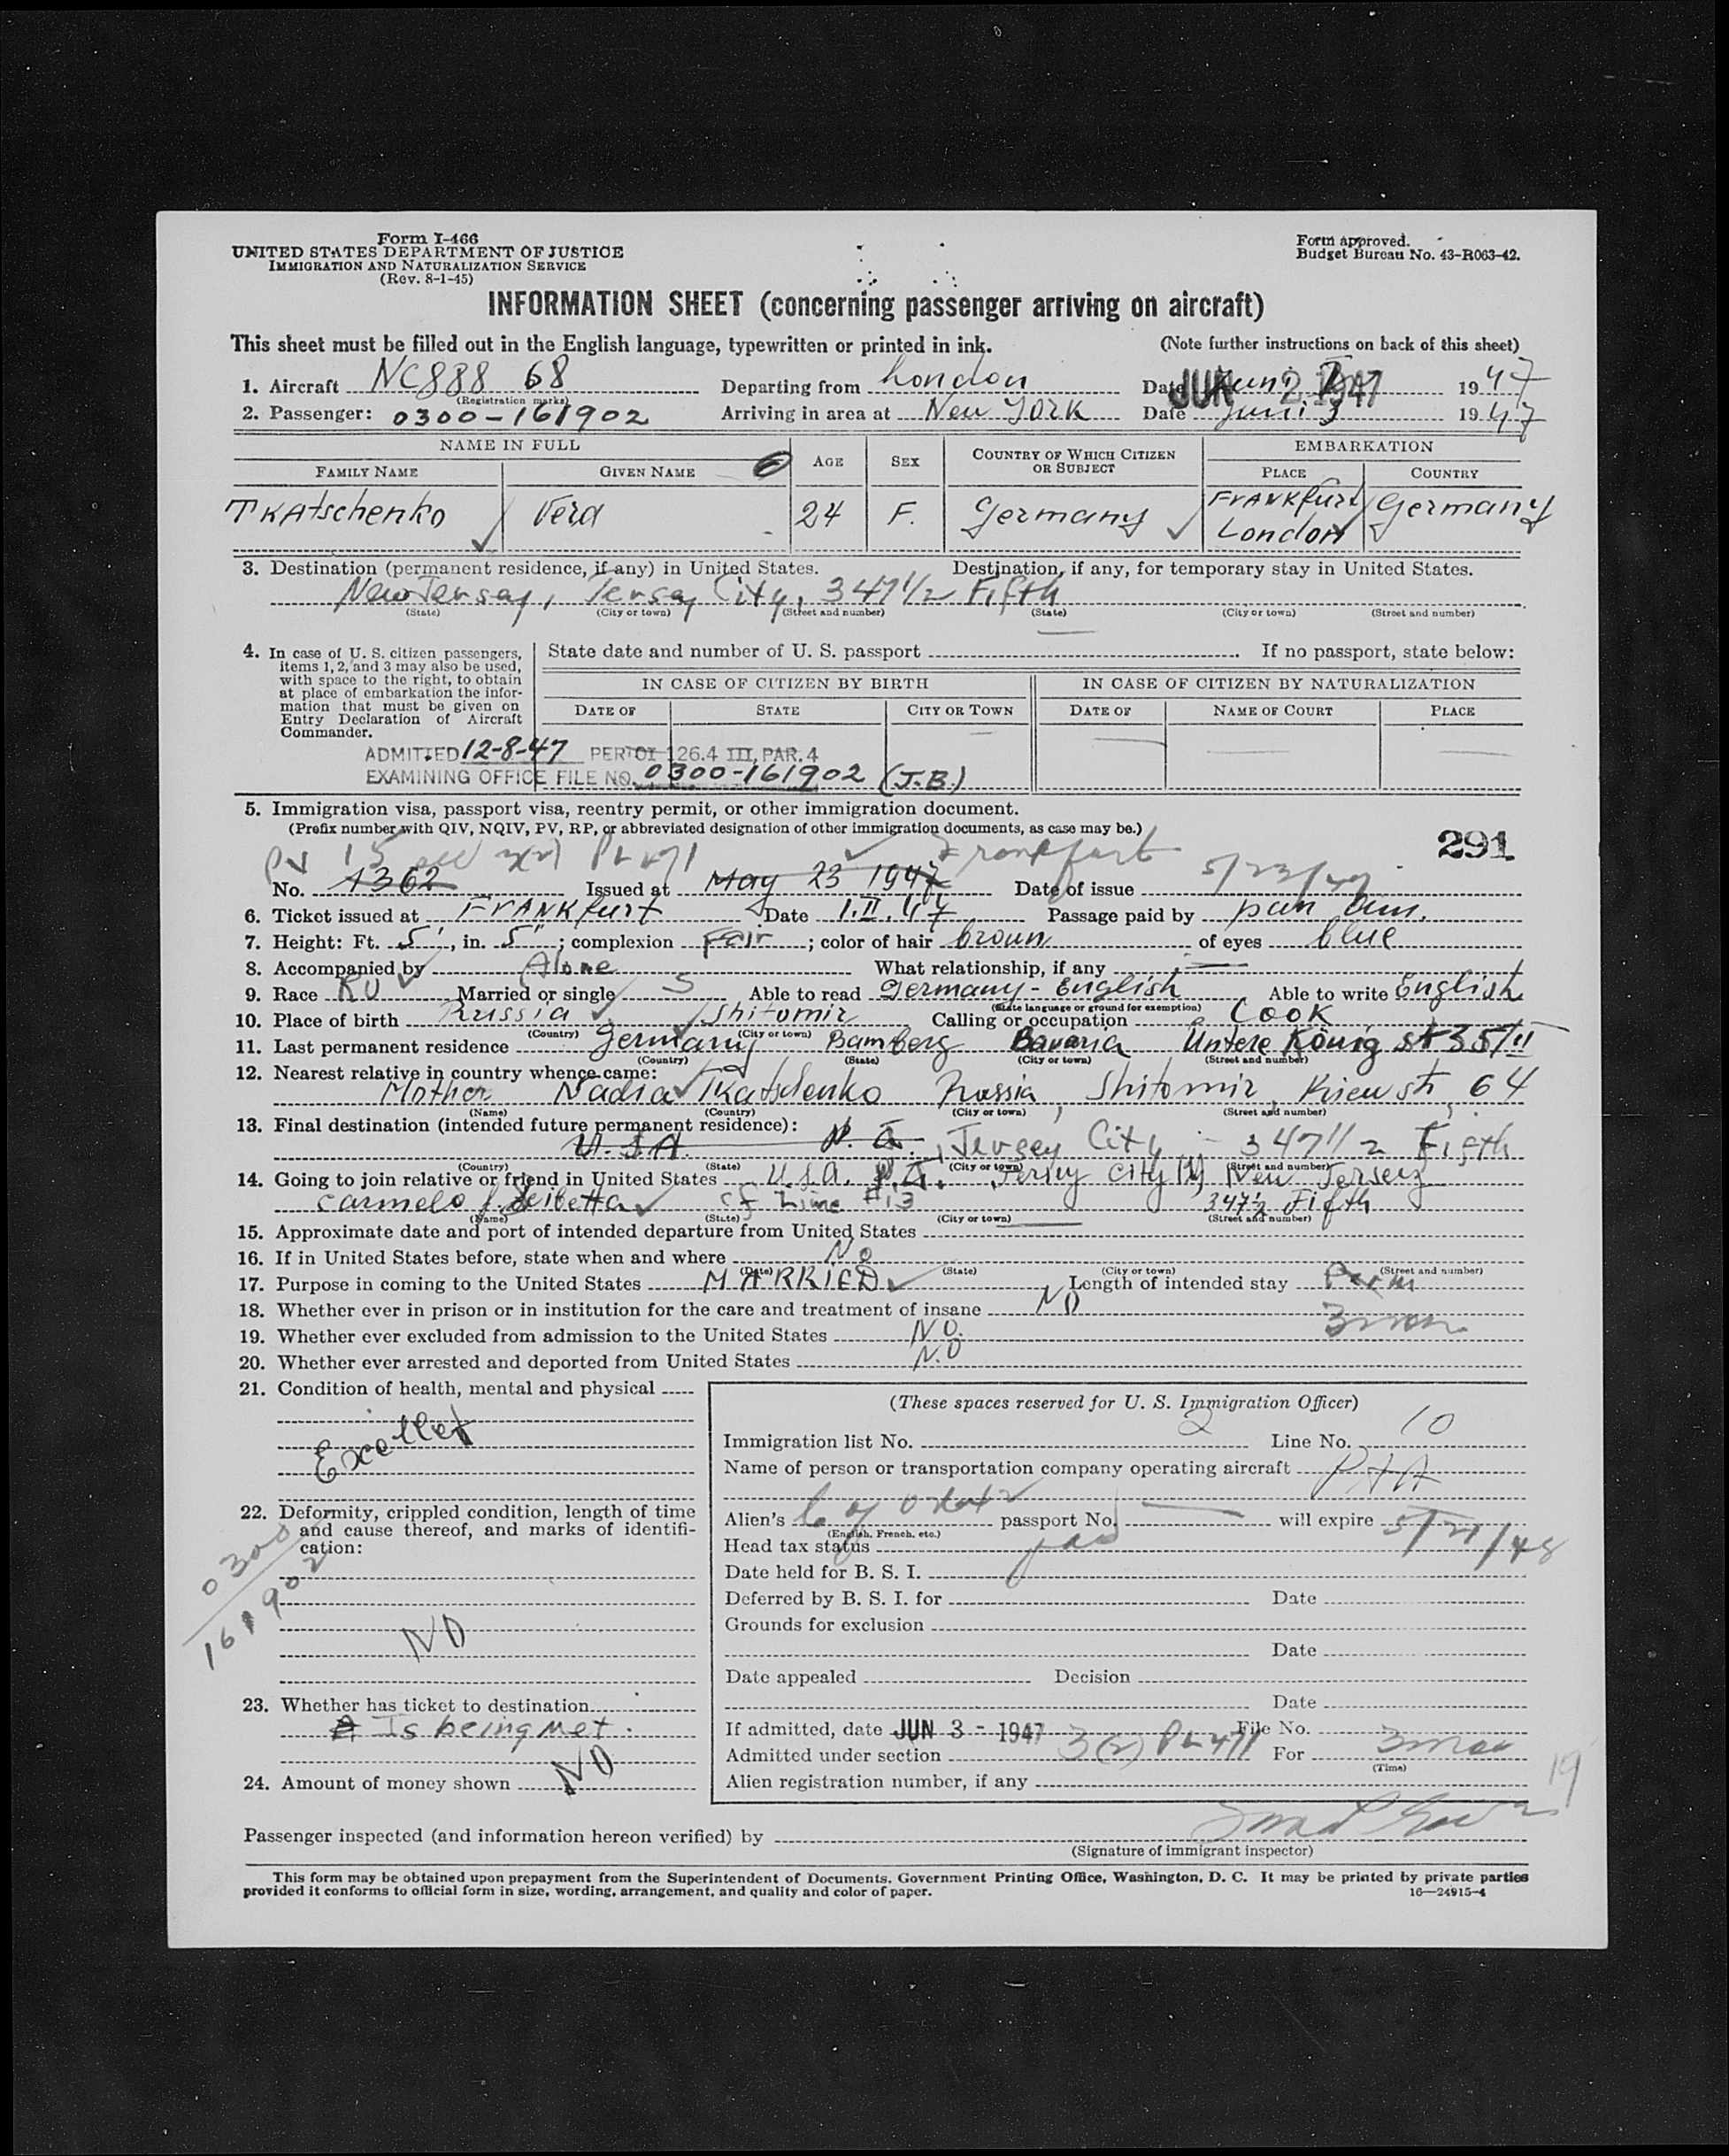 Form I-466
UNITED STATES DEPARTMENT OF JUSTICE
IMMIGRATION AND NATURALIZATION SERVICE
(Rev. 8-1-45)
Form approved.
Budget Bureau No. 43-R063-42.
INFORMATION SHEET (concerning passenger arriving on aircraft)
This sheet must be filled out in the English language, typewritten or printed in ink. (Note further instructions on back of this sheet)
1. Aircraft NC888 68 Departing from London Date JUN 2 1947 1947
(Registration marks)
2. Passenger: 0300-161902 Arriving in area at New York Date Juni 3 1947
NAME IN FULL AGE SEX COUNTRY OF WHICH CITIZEN OR SUBJECT EMBARKATION
FAMILY NAME GIVEN NAME PLACE COUNTRY
TKAtschenko Vera 24 F. Germany FrANKfurt Germany
London
3. Destination (permanent residence, if any) in United States. Destination, if any, for temporary stay in United States.
New Jersey, Jersey City, 347 1/2 Fifth
(State) (City or town) (Street and number) (State) (City or town) (Street and number)
4. In case of U. S. citizen passengers, items 1, 2, and 3 may also be used, with space to the right, to obtain at place of embarkation the information that must be given on Entry Declaration of Aircraft Commander.
State date and number of U. S. passport If no passport, state below:
IN CASE OF CITIZEN BY BIRTH IN CASE OF CITIZEN BY NATURALIZATION
DATE OF STATE CITY OR TOWN DATE OF NAME OF COURT PLACE
ADMITTED 12-8-47 PER TOI 126.4 III, PAR. 4
EXAMINING OFFICE FILE NO. 0300-161902 (J.B.)
5. Immigration visa, passport visa, reentry permit, or other immigration document.
(Prefix number with QIV, NQIV, PV, RP, or abbreviated designation of other immigration documents, as case may be.)
291
PV 15 3(2) PL 471 Frankfurt
No. 1362 Issued at May 23 1947 Date of issue 5/23/47
6. Ticket issued at FrANKfurt Date 1.II.47 Passage paid by pan am.
7. Height: Ft. 5', in. 5"; complexion Fair; color of hair broun of eyes blue
8. Accompanied by Alone What relationship, if any
9. Race RU Married or single S Able to read Germany-English Able to write English
(State language or ground for exemption)
10. Place of birth Russia Shitomir Calling or occupation Cook
(Country) (City or town)
11. Last permanent residence Germany Bamberg Bavaria Untere König st 35/II
(Country) (State) (City or town) (Street and number)
12. Nearest relative in country whence came:
Mother Nadia Tkatschenko Russia, Shitomir, Kiew st, 64
(Name) (Country) (City or town) (Street and number)
13. Final destination (intended future permanent residence):
U.S.A. N. J. Jersey City - 347 1/2 Fifth
(Country) (State) (City or town) (Street and number)
14. Going to join relative or friend in United States U.S.A. N.J. Jersey City New Jersey
Carmelo cf Line #13 347 1/2 Fifth
(Name) (State) (City or town) (Street and number)
15. Approximate date and port of intended departure from United States
16. If in United States before, state when and where No
(Date) (State) (City or town) (Street and number)
17. Purpose in coming to the United States MARRIED Length of intended stay Perm
18. Whether ever in prison or in institution for the care and treatment of insane NO 3 mos
19. Whether ever excluded from admission to the United States NO.
20. Whether ever arrested and deported from United States N.O
21. Condition of health, mental and physical
Excellet
22. Deformity, crippled condition, length of time and cause thereof, and marks of identification:
0300
161902
NO
23. Whether has ticket to destination
Is being met.
24. Amount of money shown NO
(These spaces reserved for U. S. Immigration Officer)
Immigration list No. 2 Line No. 10
Name of person or transportation company operating aircraft PAA
Alien's passport No. will expire 5/21/48
(English, French, etc.)
Head tax status
Date held for B. S. I.
Deferred by B. S. I. for Date
Grounds for exclusion
Date
Date appealed Decision
Date
If admitted, date JUN 3 - 1947 File No.
Admitted under section 3(2) PL 471 For 3 mos
(Time)
Alien registration number, if any
19
Passenger inspected (and information hereon verified) by
(Signature of immigrant inspector)
This form may be obtained upon prepayment from the Superintendent of Documents, Government Printing Office, Washington, D. C. It may be printed by private parties
provided it conforms to official form in size, wording, arrangement, and quality and color of paper. 16—24915-4